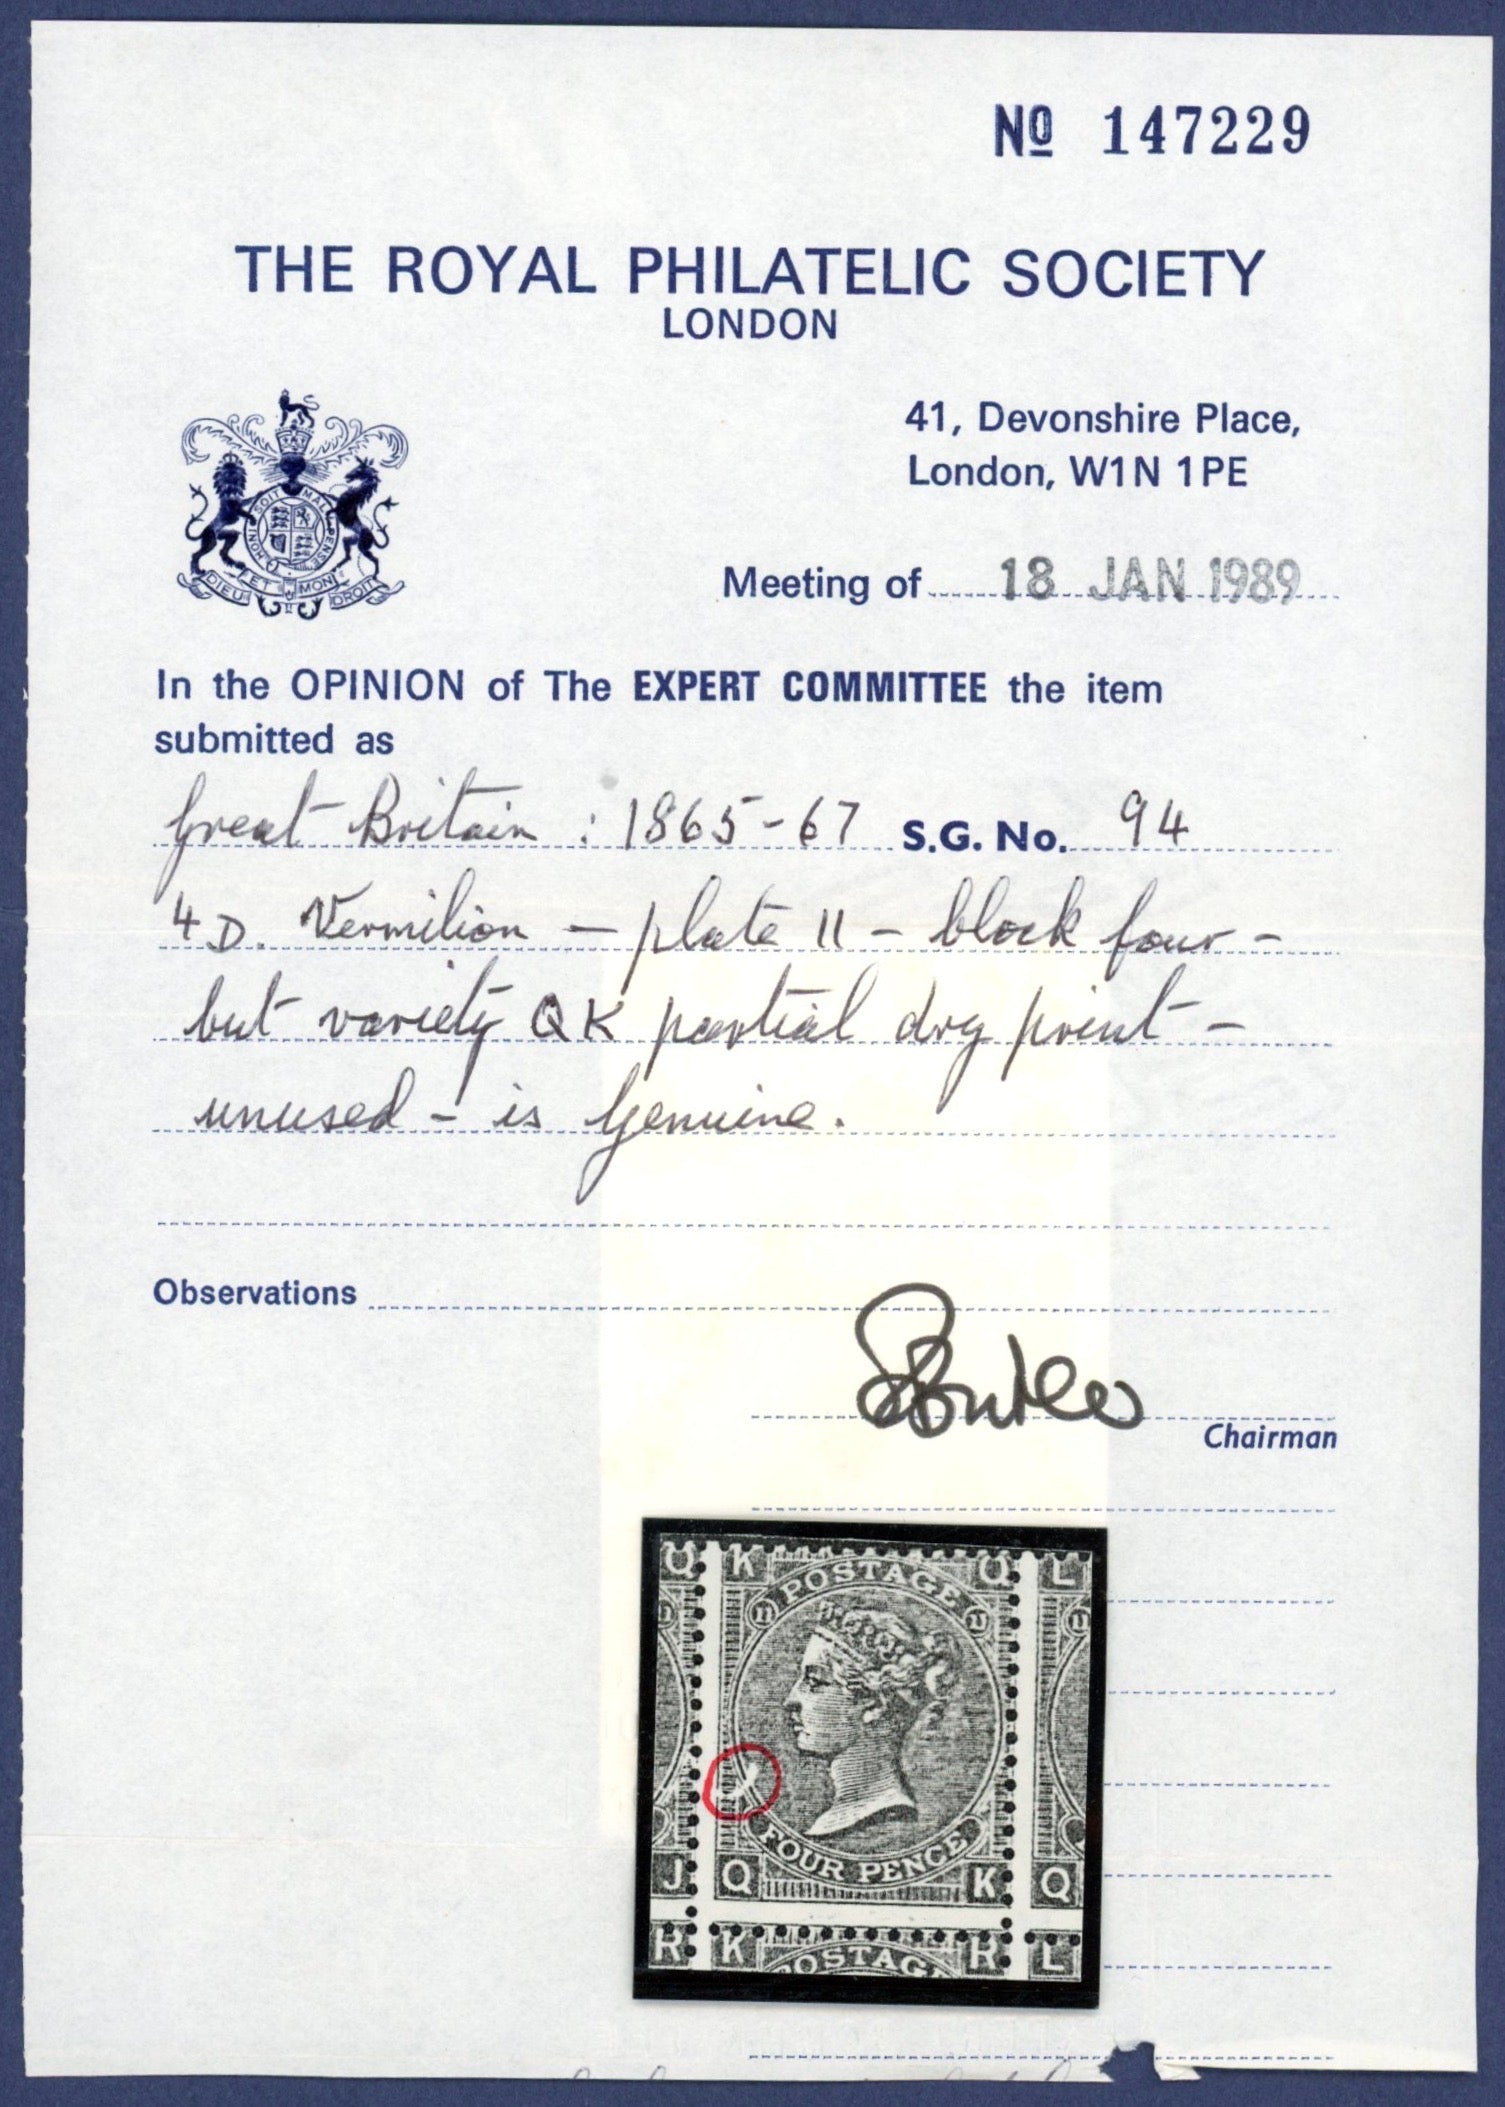 Nº 147229
THE ROYAL PHILATELIC SOCIETY
LONDON
41, Devonshire Place,
London, W1N 1PE
HONI SOIT MAL PENSE
DIEU ET MON DROIT
Meeting of 18 JAN 1989
In the OPINION of The EXPERT COMMITTEE the item
submitted as
Great Britain : 1865-67 S.G. No. 94
4D. Vermilion – plate 11 – block four –
but variety QK partial dry print –
unused – is Genuine.
Observations
Chairman
Q K Q L
POSTAGE
11 11 11
FOUR PENCE
J Q K Q
R K R L
POSTAG